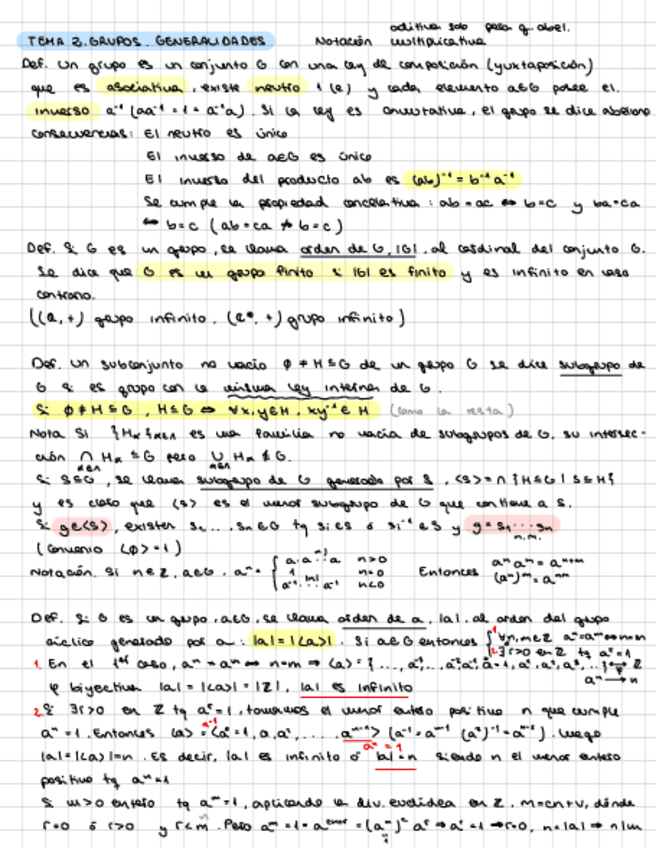 aditiva solo para g. abel.
TEMA 2. GRUPOS. GENERALIDADES Notación multiplicativa
Def. Un grupo es un conjunto G con una ley de composición (yuxtaposición)
que es asociativa, existe neutro 1 (e) y cada elemento a∈G posee el
inverso a⁻¹ (aa⁻¹ = 1 = a⁻¹a). Si la ley es conmutativa, el grupo se dice abeliano
Consecuencias: El neutro es único
El inverso de a∈G es único
El inverso del producto ab es (ab)⁻¹ = b⁻¹a⁻¹
Se cumple la propiedad cancelativa: ab = ac ⇔ b=c y ba=ca
⇔ b=c (ab=ca ⇏ b=c)
Def. Si G es un grupo, se llama orden de G, |G|, al cardinal del conjunto G.
Se dice que G es un grupo finito si |G| es finito y es infinito en caso
contrario.
((ℚ,+) grupo infinito. (ℚ*,+) grupo infinito)
Def. Un subconjunto no vacío ∅ ≠ H ⊆ G de un grupo G se dice subgrupo de
G si es grupo con la misma ley interna de G.
Si ∅ ≠ H ⊆ G, H ≤ G ⇔ ∀x,y∈H, xy⁻¹ ∈ H (como la resta)
Nota Si {Hα}α∈Λ es una familia no vacía de subgrupos de G, su intersec-
ción ∩ Hα ≤ G pero ∪ Hα ≰ G.
α∈Λ α∈Λ
Si S⊆G, se llama subgrupo de G generado por S, <S> = ∩ {H≤G | S⊆H}
y es claro que <S> es el menor subgrupo de G que contiene a S.
Si g∈<S>, existen s₁ ... sₙ ∈ G tq si∈S ó si⁻¹∈S y g = s₁ ... sₙ
(Convenio <∅> = 1)
Notación. Si n∈ℤ, a∈G, aⁿ = { a·a ⁿ⁾ a n>0
1 n=0
a⁻¹ |n| a⁻¹ n<0
Entonces aⁿaᵐ = aⁿ⁺ᵐ
(aⁿ)ᵐ = aⁿᵐ
Def. Si G es un grupo, a∈G, se llama orden de a, |a|, al orden del grupo
cíclico generado por a: |a| = |<a>|. Si a∈G entonces { 1. ∀n,m∈ℤ aⁿ=aᵐ ⇔ n=m
2. ∃r>0 en ℤ tq aʳ=1
1. En el 1er caso, aⁿ = aᵐ ⇔ n=m ⇒ <a> = {..., a⁻², a⁻¹, a⁰=1, a¹, a², a³, ...} ↔ ℤ
aⁿ → n
φ biyectiva |a| = |<a>| = |ℤ|, |a| es infinito
2. Si ∃r>0 en ℤ tq aʳ=1, tomamos el menor entero positivo n que cumple
aⁿ = 1. Entonces <a> = {a⁰=1, a, a², ..., aⁿ⁻¹} (a⁻¹ = aⁿ⁻¹ (a²)⁻¹ = aⁿ⁻²). Luego
aⁿ = 1
|a| = |<a>| = n. Es decir, |a| es infinito ó |a|=n siendo n el menor entero
positivo tq aⁿ=1
Si m>0 entero tq aᵐ=1, aplicando la div. euclídea en ℤ, m=cn+r, dónde
r=0 ó r>0 y r<n. Pero aᵐ = 1 = aᶜⁿ⁺ʳ = (aⁿ)ᶜ aʳ ⇒ aʳ = 1 ⇒ r=0, n=|a| ⇒ n|m